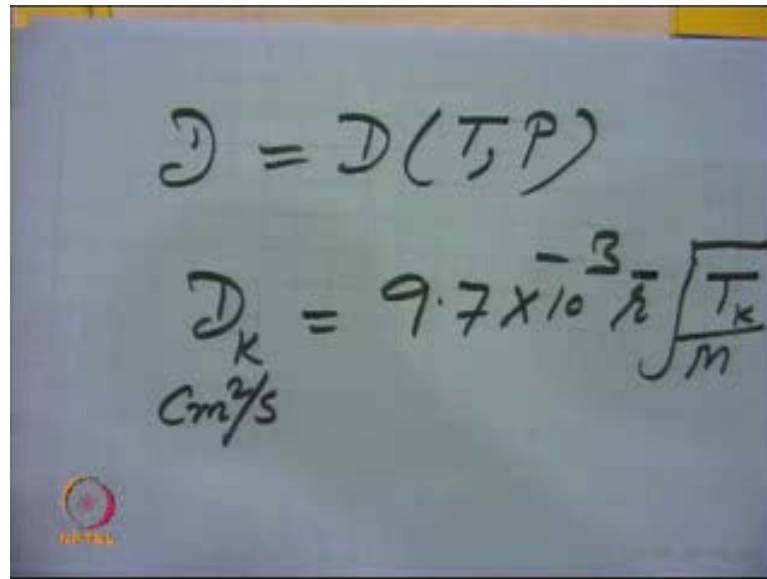 D = D(T, P)
D_K = 9.7 × 10^-3 r̄ √(T_K/M)
cm²/s
NPTEL